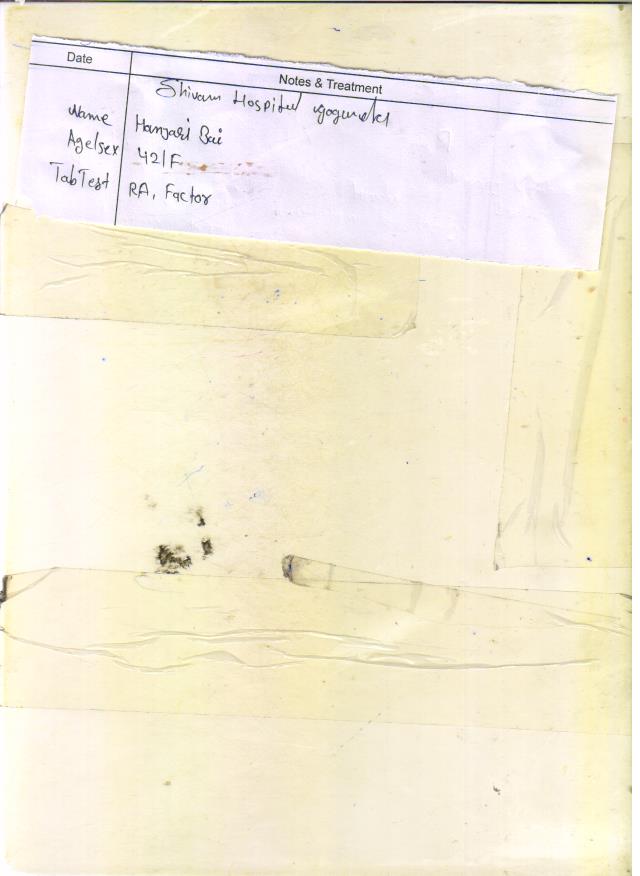 Date Notes & Treatment
Shivam Hospital
Name Hanjari Bai
Age/sex 42/F
Tab Test RA, Factor